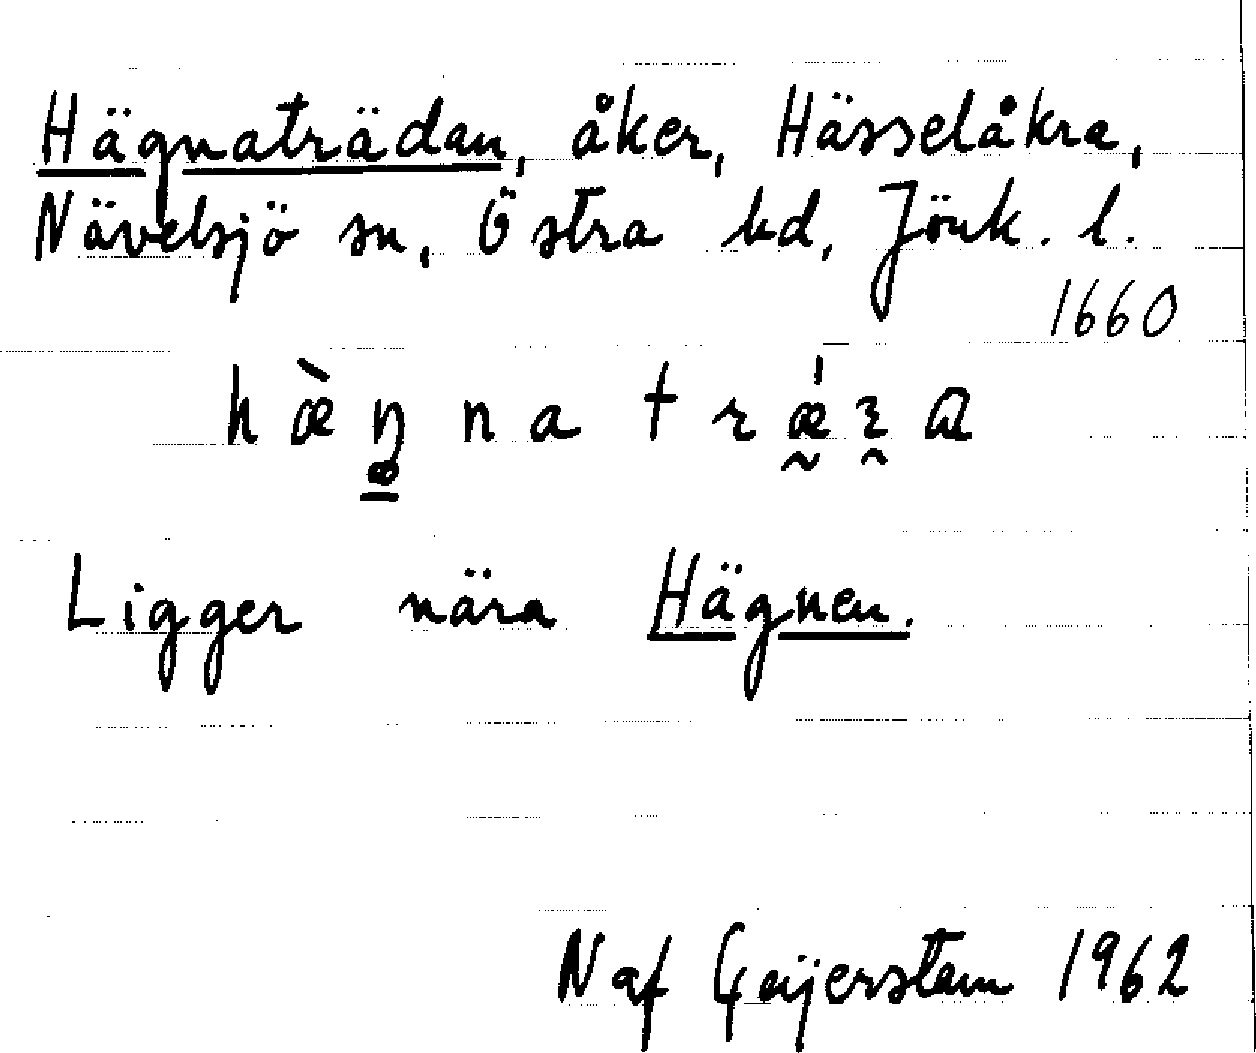 Hägnaträdan, åker, Hässelåkra,
Nävelsjö sn, Östra hd, Jönk. l.
1660
hæ̀ŋnatrǽ̰ɿ̯ɑ
Ligger nära Hägnen.
N af Geijerstam 1962